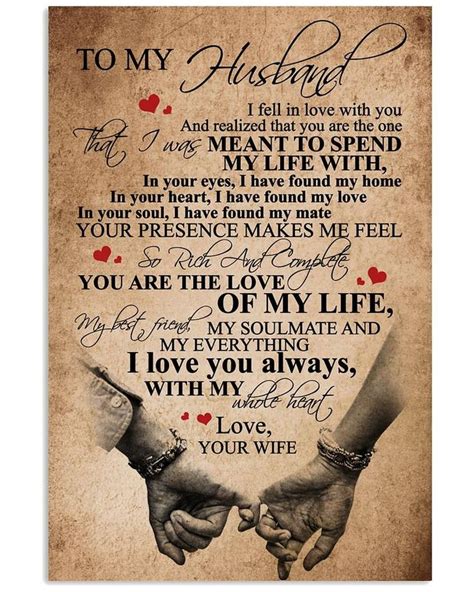 TO MY Husband
I fell in love with you
And realized that you are the one
That I was MEANT TO SPEND
MY LIFE WITH,
In your eyes, I have found my home
In your heart, I have found my love
In your soul, I have found my mate
YOUR PRESENCE MAKES ME FEEL
So Rich And Complete
YOU ARE THE LOVE
OF MY LIFE,
My best friend, MY SOULMATE AND
MY EVERYTHING
I love you always,
WITH MY whole heart
Love,
YOUR WIFE